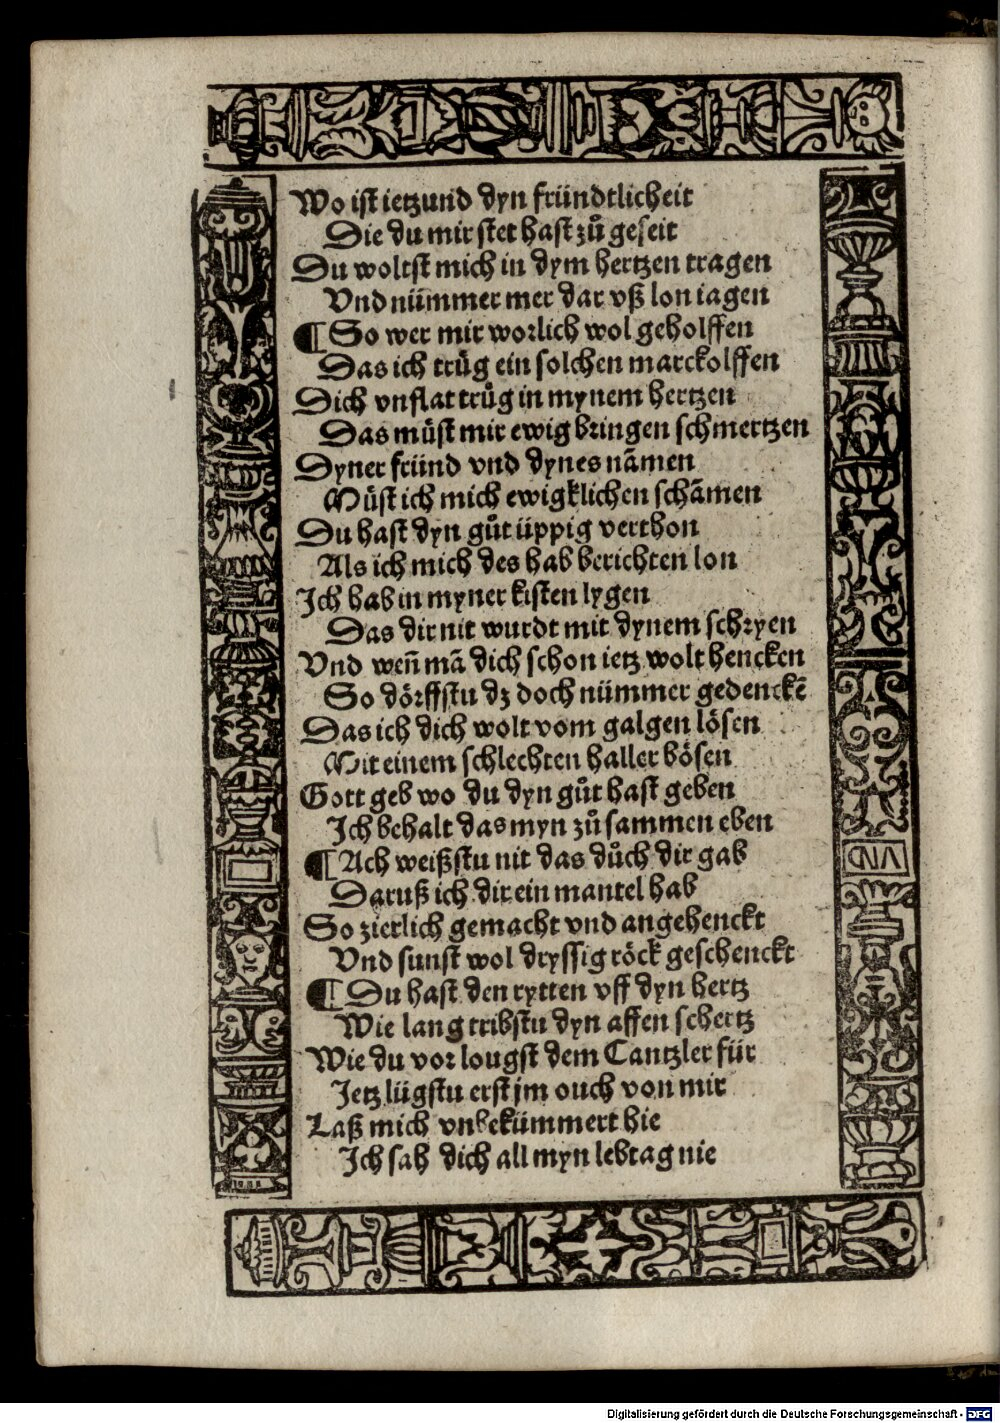 Wo ist ietzund dyn fründtlicheit
Die du mir stet hast zů geseit
Du woltst mich in dym hertzen tragen
Vnd nümmer mer dar vß lon iagen
¶ So wer mir worlich wol geholffen
Das ich trüg ein solchen marckolffen
Dich vnflat trüg in mynem hertzen
Das müst mir ewig bringen schmertzen
Dyner fründ vnd dynes nãmen
Müst ich mich ewigklichen schãmen
Du hast dyn gůt üppig verthon
Als ich mich des hab berichten lon
Ich hab in myner kisten lygen
Das dir nit wurdt mit dynem schryen
Vnd weñ mã dich schon ietz wolt hencken
So dörffstu dz doch nümmer gedenckẽ
Das ich dich wolt vom galgen lösen
Mit einem schlechten haller bösen
Gott geb wo du dyn gůt hast geben
Ich behalt das myn zů sammen eben
¶ Ach weißstu nit das důch dir gab
Daruß ich dir ein mantel hab
So zierlich gemacht vnd angehenckt
Vnd sunst wol dryssig röck geschenckt
¶ Du hast den rytten vff dyn hertz
Wie lang tribstu dyn affen schertz
Wie du vor lougst dem Cantzler für
Jetz lügstu erst jm ouch von mir
Laß mich vnbekümmert hie
Ich sah dich all myn lebtag nie
Digitalisierung gefördert durch die Deutsche Forschungsgemeinschaft - DFG